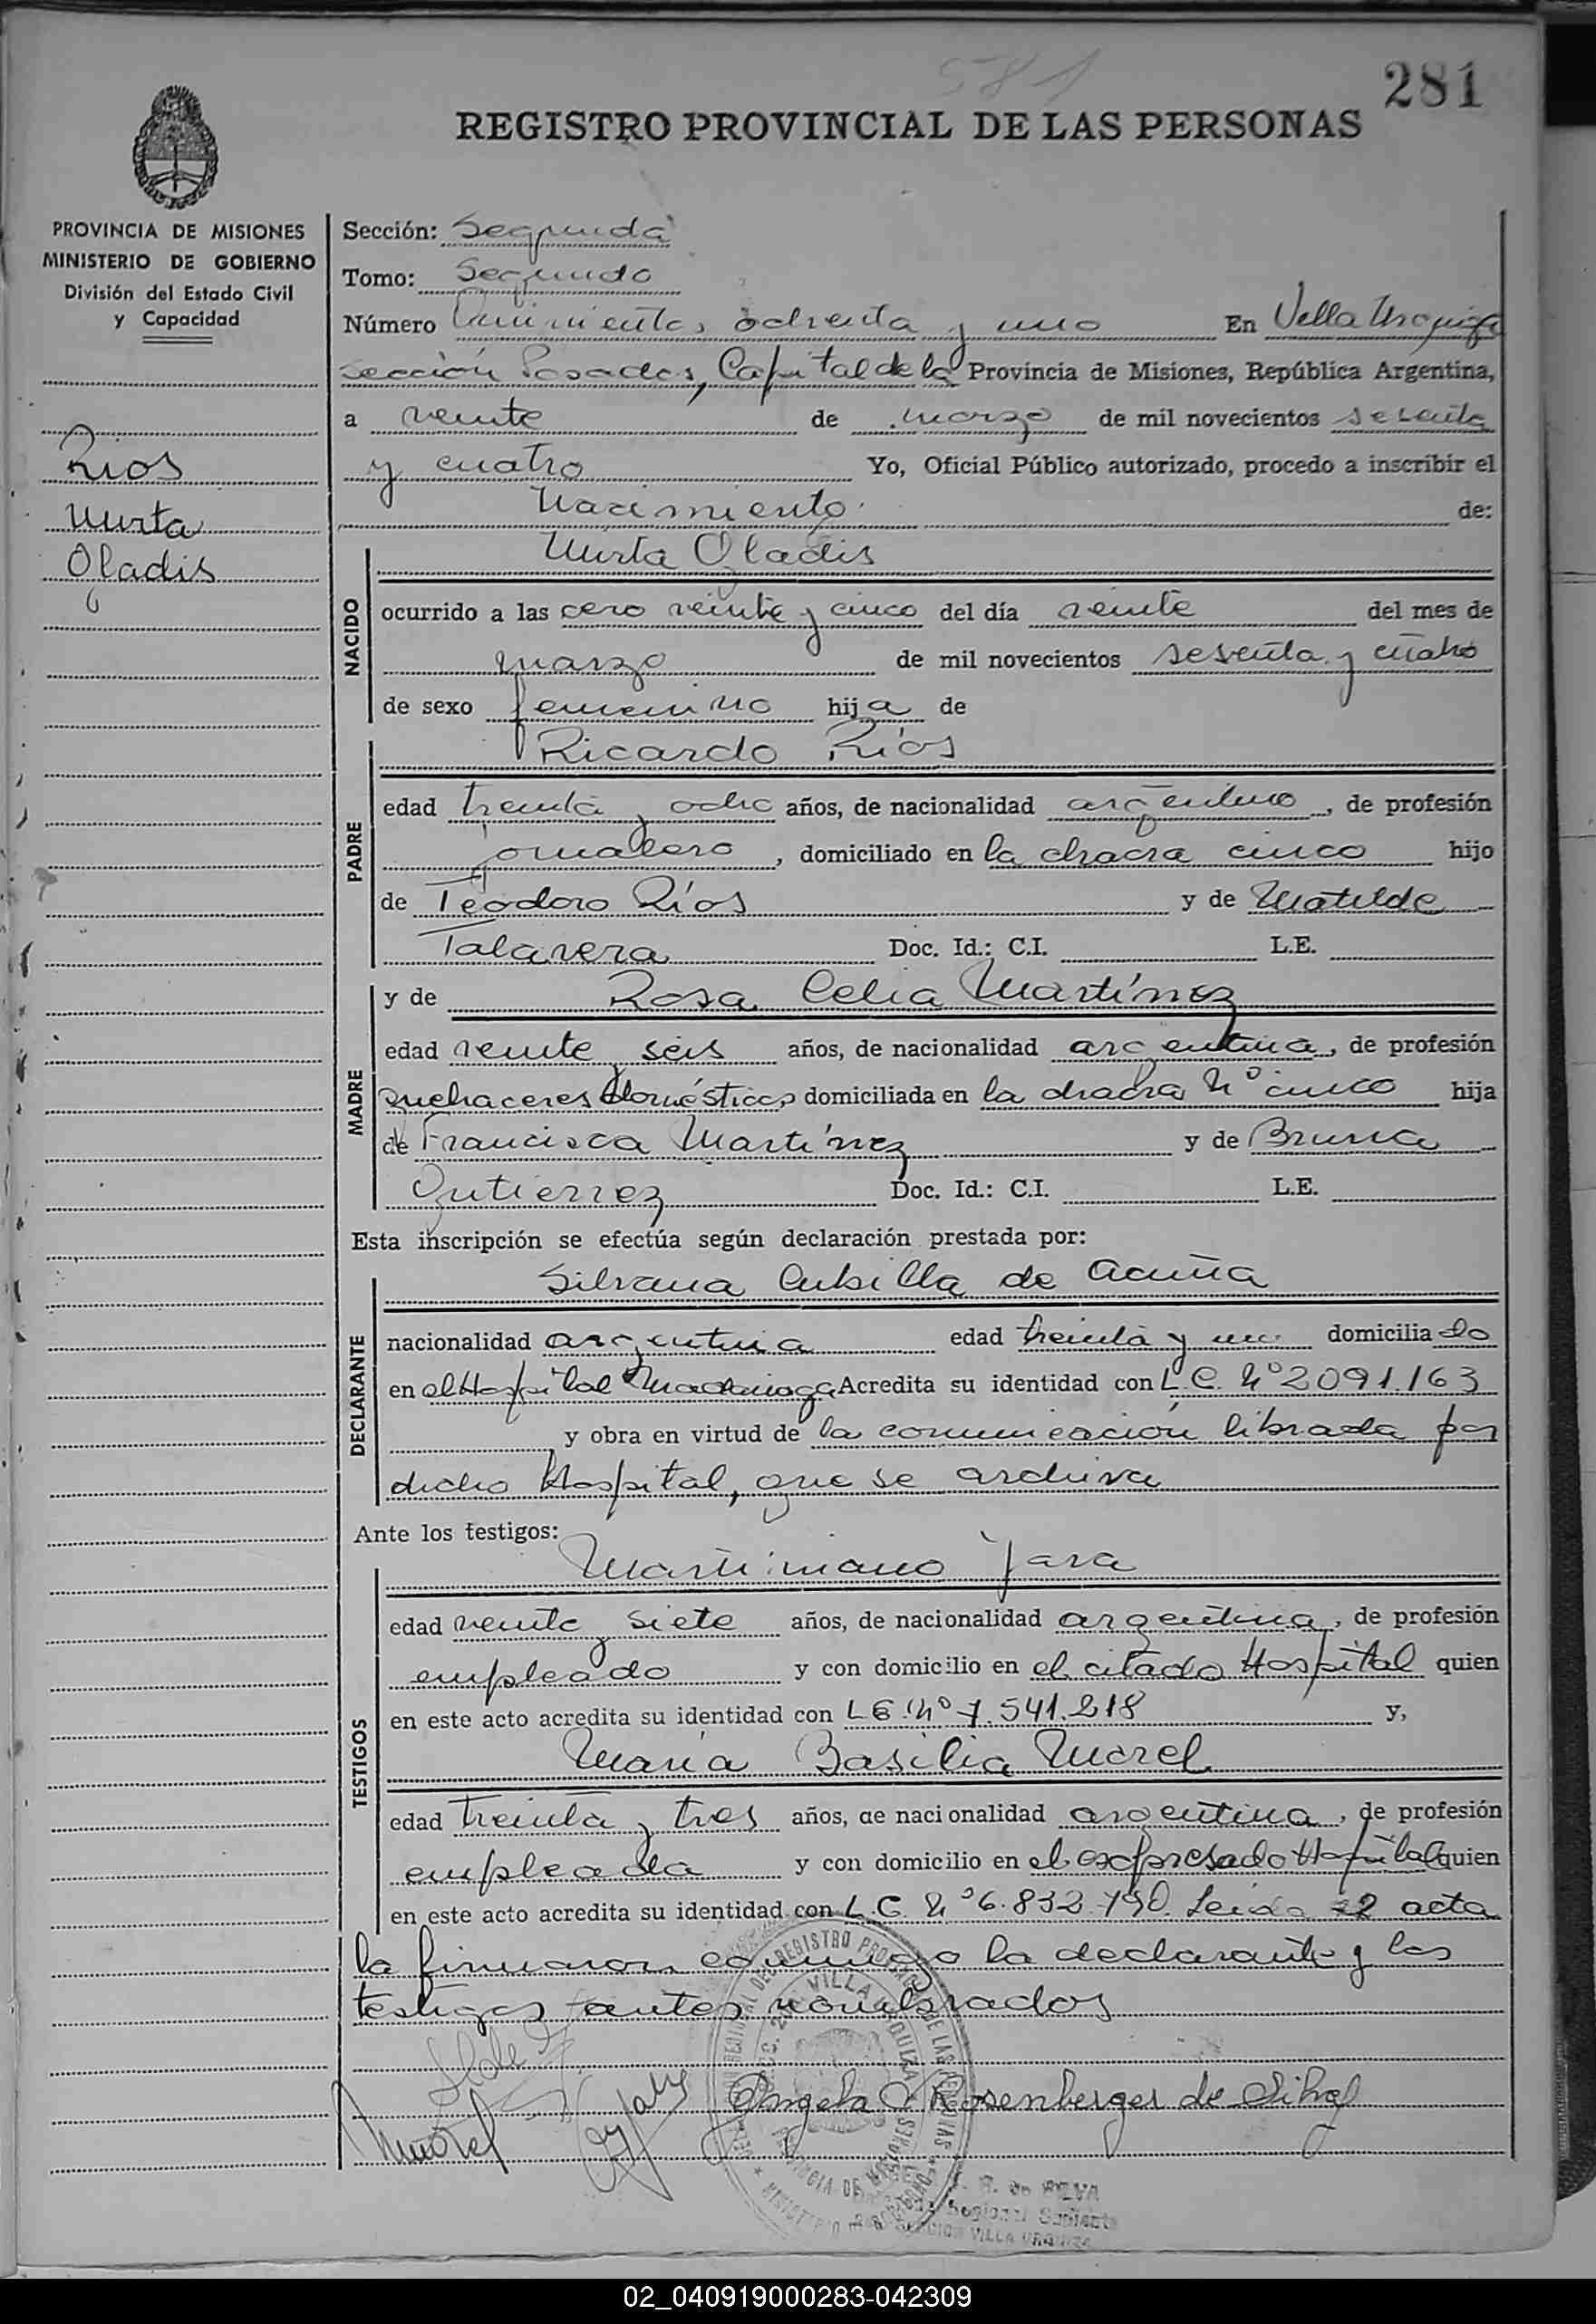 581
281
REGISTRO PROVINCIAL DE LAS PERSONAS
PROVINCIA DE MISIONES
MINISTERIO DE GOBIERNO
División del Estado Civil
y Capacidad
Rios
Mirta
Gladis
Sección: Segunda
Tomo: Segundo
Número Quinientos ochenta y uno En Villa Urquiza
sección Posadas, Capital de la Provincia de Misiones, República Argentina,
a veinte de marzo de mil novecientos sesenta
y cuatro Yo, Oficial Público autorizado, procedo a inscribir el
Nacimiento de:
NACIDO
Mirta Gladis
ocurrido a las cero veinte y cinco del día veinte del mes de
marzo de mil novecientos sesenta y cuatro
de sexo femenino hija de
PADRE
Ricardo Ríos
edad treinta y ocho años, de nacionalidad argentino, de profesión
jornalero, domiciliado en la chacra cinco hijo
de Teodoro Ríos y de Matilde
Talavera Doc. Id.: C.I. L.E.
MADRE
y de Rosa Celia Martínez
edad veinte y seis años, de nacionalidad argentina, de profesión
quehaceres domésticos domiciliada en la chacra Nº cinco hija
de Francisca Martínez y de Bruna
Gutierrez Doc. Id.: C.I. L.E.
Esta inscripción se efectúa según declaración prestada por:
DECLARANTE
Silvana Cubilla de Acuña
nacionalidad argentina edad treinta y un domiciliado
en el Hospital Madariaga Acredita su identidad con L.C. Nº 2091.163
y obra en virtud de la comunicación librada por
dicho Hospital, que se archiva
Ante los testigos:
TESTIGOS
Martiniano Jara
edad veinte y siete años, de nacionalidad argentina, de profesión
empleado y con domicilio en el citado Hospital quien
en este acto acredita su identidad con L E. Nº 7.541.218 y,
María Basilia Morel
edad treinta y tres años, de nacionalidad argentina, de profesión
empleada y con domicilio en el expresado Hospital quien
en este acto acredita su identidad con L.C. Nº 6.832.790. Leida el acta
la firmaron conmigo la declarante y los
testigos antes nombrados
Angela Rosenberger de Silva
MMorel
R. de SILVA
VILLA URQUIZA
02_040919000283-042309